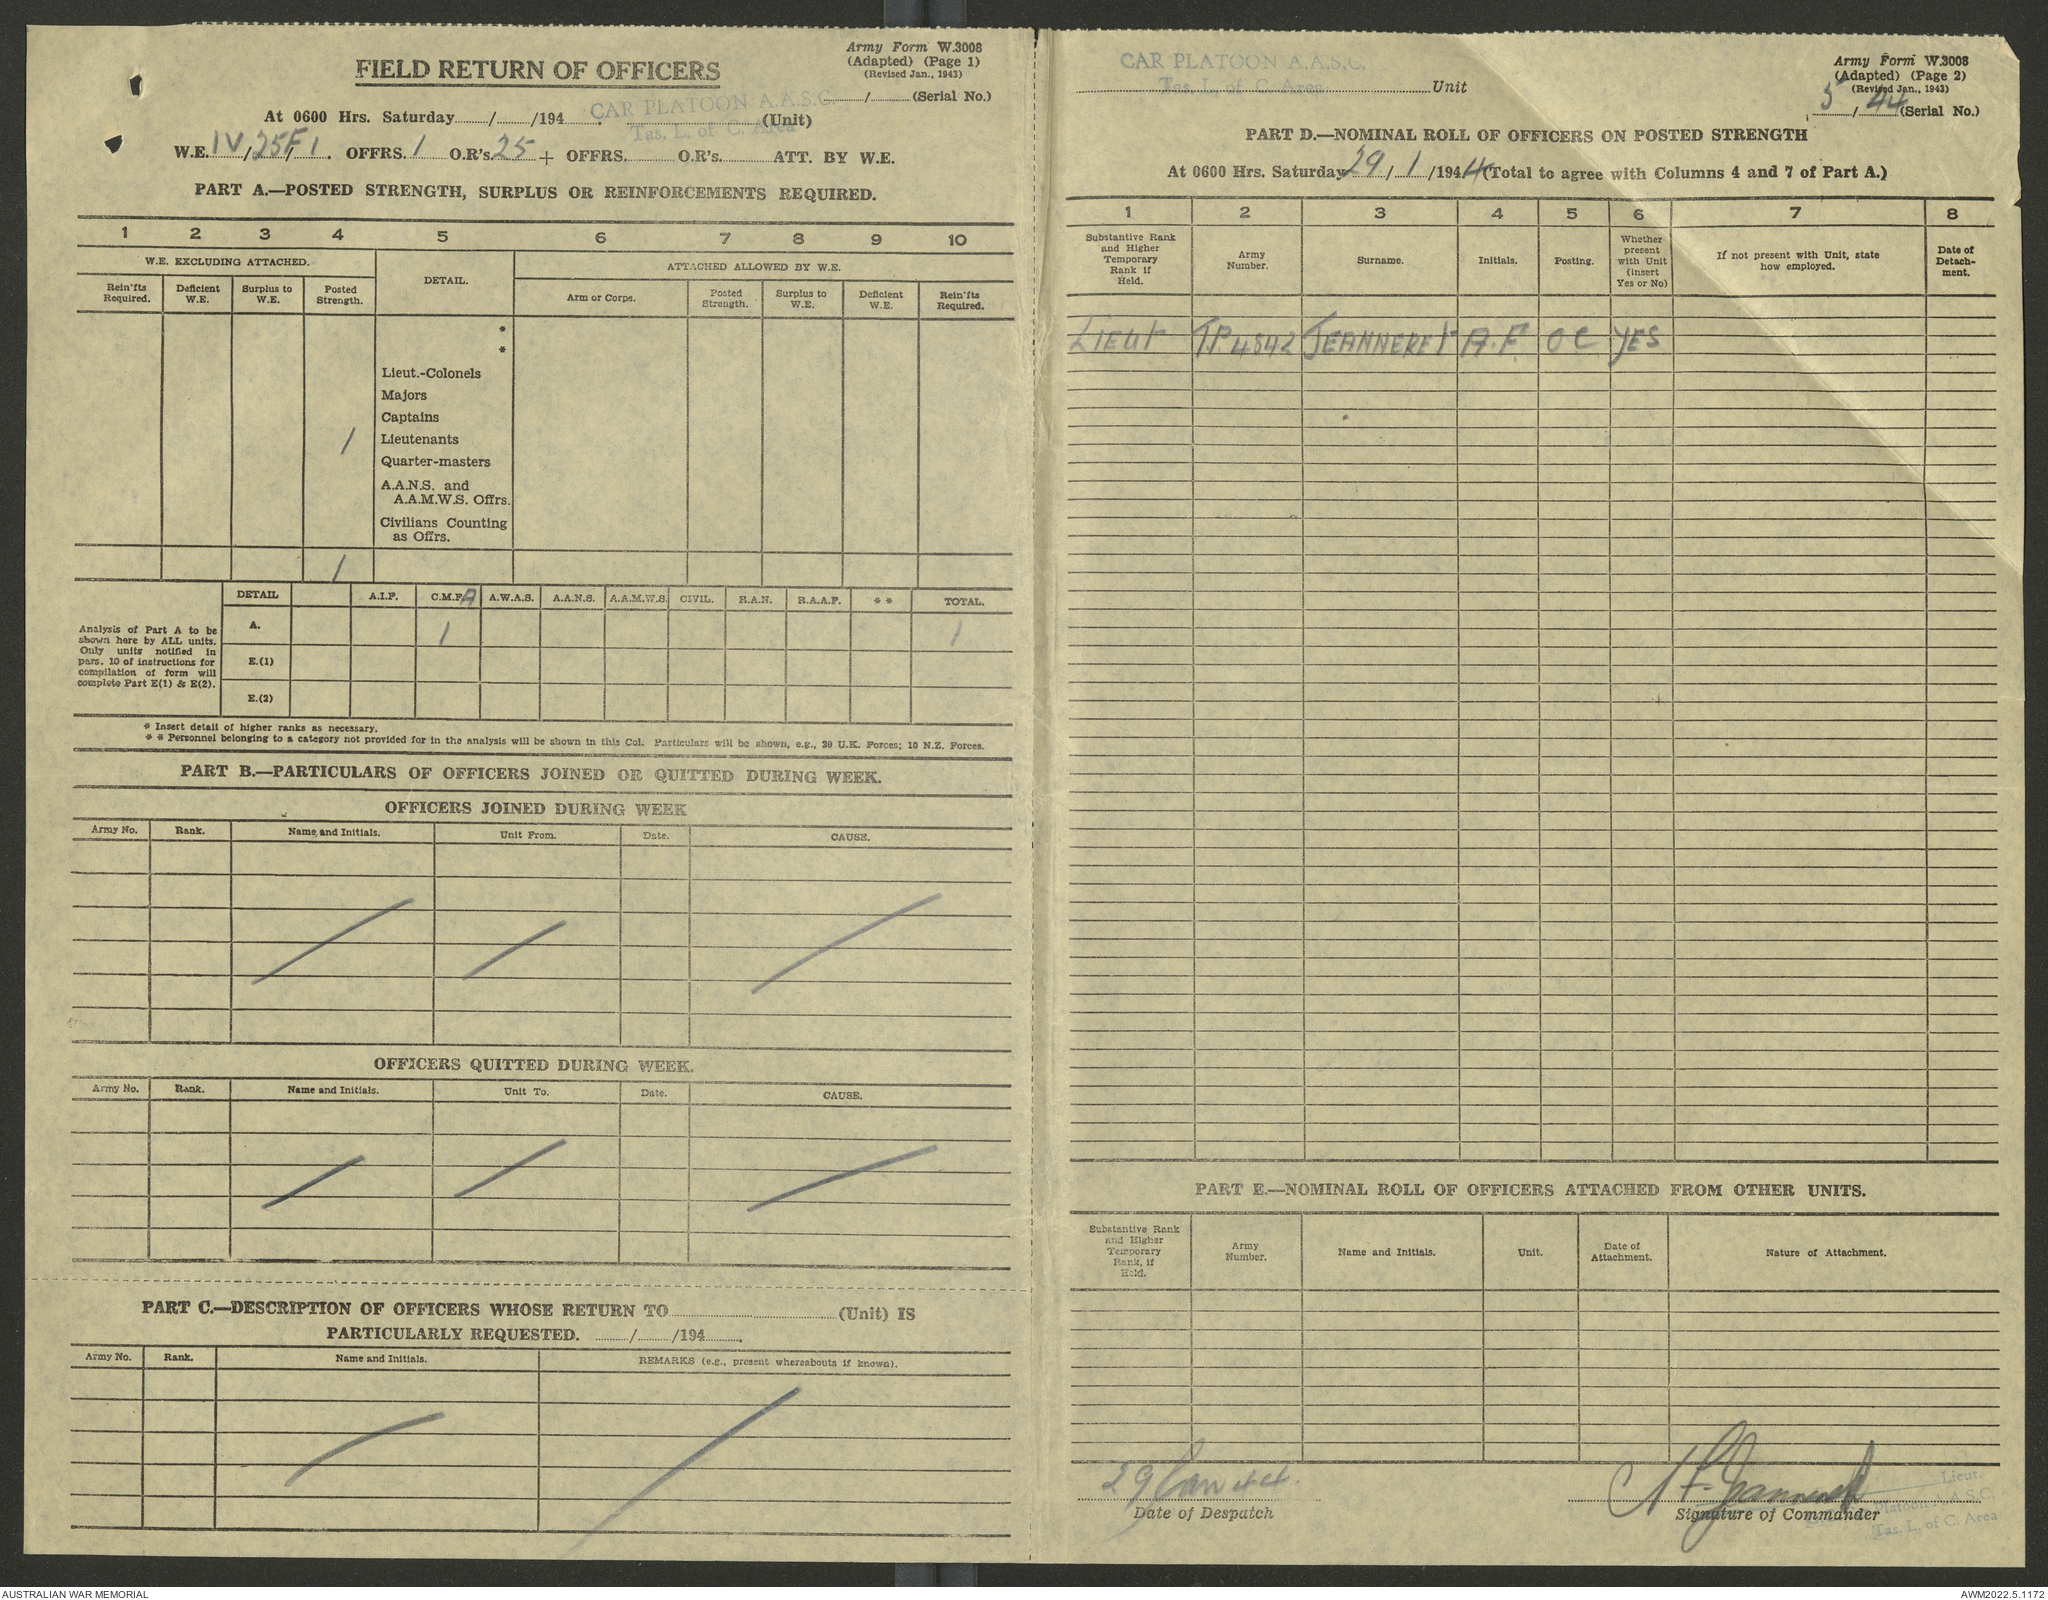 Army Form W.3008
(Adapted) (Page 1)
(Revised Jan., 1943)
FIELD RETURN OF OFFICERS
/ (Serial No.)
At 0600 Hrs. Saturday / /194 . CAR PLATOON A.A.S.C. (Unit)
Tas. L. of C. Area
W.E. IV/25F/1. OFFRS. 1 O.R's. 25 + OFFRS. O.R's. ATT. BY W.E.
PART A.—POSTED STRENGTH, SURPLUS OR REINFORCEMENTS REQUIRED.
1 2 3 4 5 6 7 8 9 10
W.E. EXCLUDING ATTACHED. DETAIL. ATTACHED ALLOWED BY W.E.
Rein'fts Required. Deficient W.E. Surplus to W.E. Posted Strength. Arm or Corps. Posted Strength. Surplus to W.E. Deficient W.E. Rein'fts Required.
*
*
Lieut.-Colonels
Majors
Captains
1 Lieutenants
Quarter-masters
A.A.N.S. and
A.A.M.W.S. Offrs.
Civilians Counting
as Offrs.
1
DETAIL A.I.F. C.M.F. A A.W.A.S. A.A.N.S. A.A.M.W.S. CIVIL. R.A.N. R.A.A.F. * * TOTAL.
A. 1 1
E.(1)
E.(2)
Analysis of Part A to be
shown here by ALL units.
Only units notified in
pars. 10 of instructions for
compilation of form will
complete Part E(1) & E(2).
* Insert detail of higher ranks as necessary.
* * Personnel belonging to a category not provided for in the analysis will be shown in this Col. Particulars will be shown, e.g., 20 U.K. Forces; 10 N.Z. Forces.
PART B.—PARTICULARS OF OFFICERS JOINED OR QUITTED DURING WEEK.
OFFICERS JOINED DURING WEEK
Army No. Rank. Name and Initials. Unit From. Date. CAUSE.
OFFICERS QUITTED DURING WEEK.
Army No. Rank. Name and Initials. Unit To. Date. CAUSE.
PART C.—DESCRIPTION OF OFFICERS WHOSE RETURN TO (Unit) IS
PARTICULARLY REQUESTED. / /194 .
Army No. Rank. Name and Initials. REMARKS (e.g., present whereabouts if known).
Army Form W.3008
(Adapted) (Page 2)
(Revised Jan., 1943)
CAR PLATOON A.A.S.C.
Tas. L. of C. Area Unit
5 / 44 (Serial No.)
PART D.—NOMINAL ROLL OF OFFICERS ON POSTED STRENGTH
At 0600 Hrs. Saturday 29 / 1 /1944 (Total to agree with Columns 4 and 7 of Part A.)
1 2 3 4 5 6 7 8
Substantive Rank and Higher Temporary Rank if Held. Army Number. Surname. Initials. Posting. Whether present with Unit (insert Yes or No) If not present with Unit, state how employed. Date of Detach-ment.
LIEUT TP.4842 JEANNERET A.F. OC YES
PART E.—NOMINAL ROLL OF OFFICERS ATTACHED FROM OTHER UNITS.
Substantive Rank and Higher Temporary Rank, if Held. Army Number. Name and Initials. Unit. Date of Attachment. Nature of Attachment.
29 Jan 44. A F Jeanneret Lieut.
Date of Despatch Signature of Commander
Platoon A.A.S.C.
Tas. L. of C. Area
AUSTRALIAN WAR MEMORIAL
AWM2022.5.1172